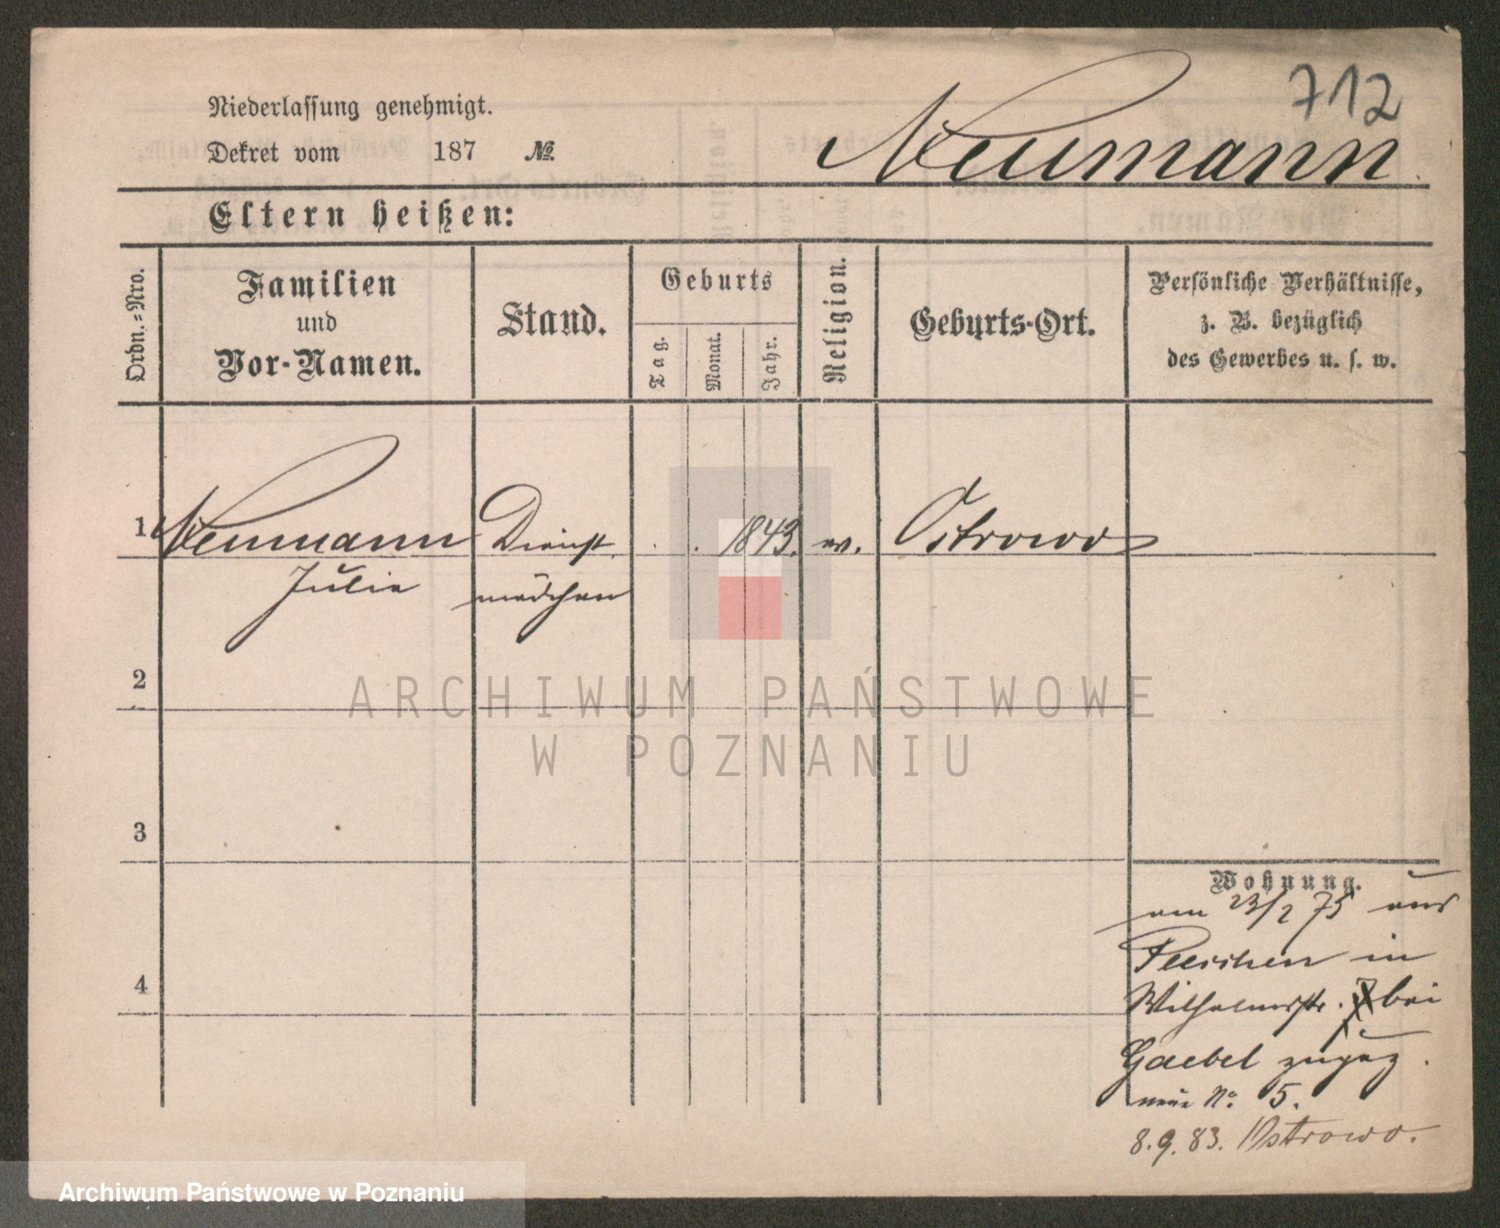 712
Niederlassung genehmigt.
Dekret vom 187 №
Neumann
Eltern heißen:
Ordn.-Nro.
Familien
und
Vor-Namen.
Stand.
Geburts
Tag.
Monat.
Jahr.
Religion.
Geburts-Ort.
Persönliche Verhältnisse,
z. B. bezüglich
des Gewerbes u. s. w.
1 Neumann Dienst 1843. Ostrowo
Julie mädchen
2
ARCHIWUM PAŃSTWOWE
W POZNANIU
3
Wohnung.
am 23/2 75 aus
in
4
Wilhelmstr. bei
Gaebel zugez.
neue No. 5.
8.9.83. Ostrowo.
Archiwum Państwowe w Poznaniu